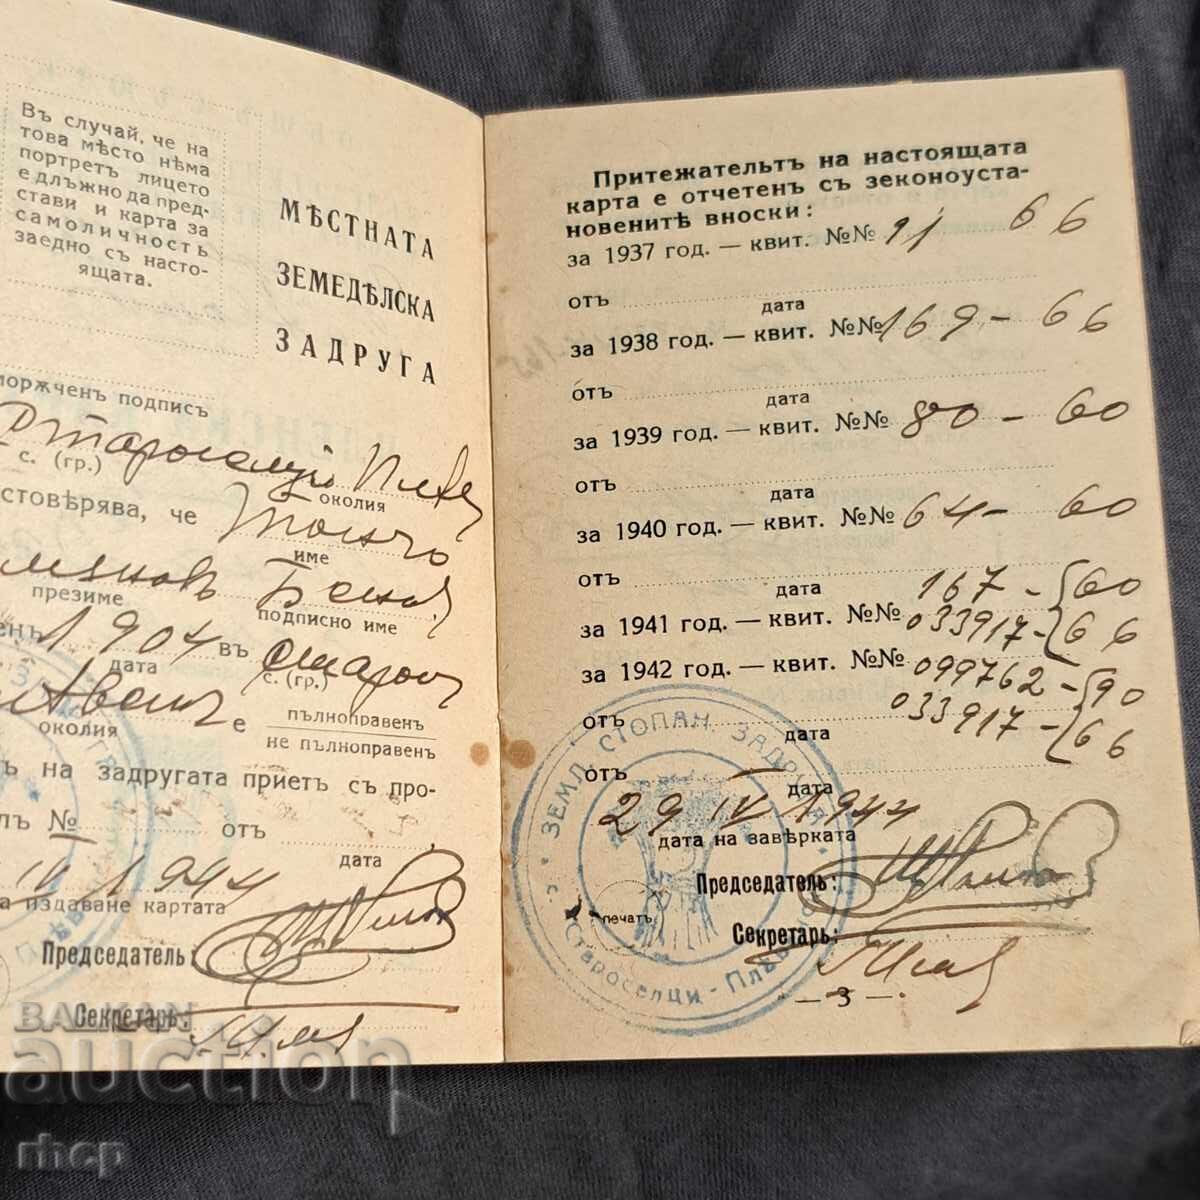 Въ случай, че на
това мѣсто нѣма
портретъ лицето
е длъжно да пред-
стави и карта за
самоличность
заедно съ насто-
ящата.
МѢСТНАТА
ЗЕМЕДѢЛСКА
ЗАДРУГА
подпись
Староселци Плев
с. (гр.)
околия
стовѣрява, че Тончо
име
Бенов
презиме
подписно име
1904 въ Старосел
дата
с. (гр.)
Плевен е пълноправенъ
околия
не пълноправенъ
ъ на задругата приетъ съ про-
лъ № отъ
дата
IV 1944
а издаване картата
Председатель:
Секретарь:
Притежательтъ на настоящата
карта е отчетенъ съ зеконоуста-
новенитѣ вноски:
за 1937 год. — квит. №№ 91 66
отъ
дата
за 1938 год. — квит. №№ 169 - 66
отъ
дата
за 1939 год. — квит. №№ 80 - 60
отъ
дата
за 1940 год. — квит. №№ 64 - 60
отъ
дата
167 - 60
за 1941 год. — квит. №№ 033917 - 66
за 1942 год. — квит. №№ 099762 - 90
033917 - 66
отъ
дата
отъ
дата
29 IV 1944
дата на завѣрката
Председатель:
печатъ
Секретарь:
— 3 —
ЗЕМЛ. СТОПАН. ЗАДРУГА
Староселци - Плѣвенско
БАЛКАН
auction
rhcp